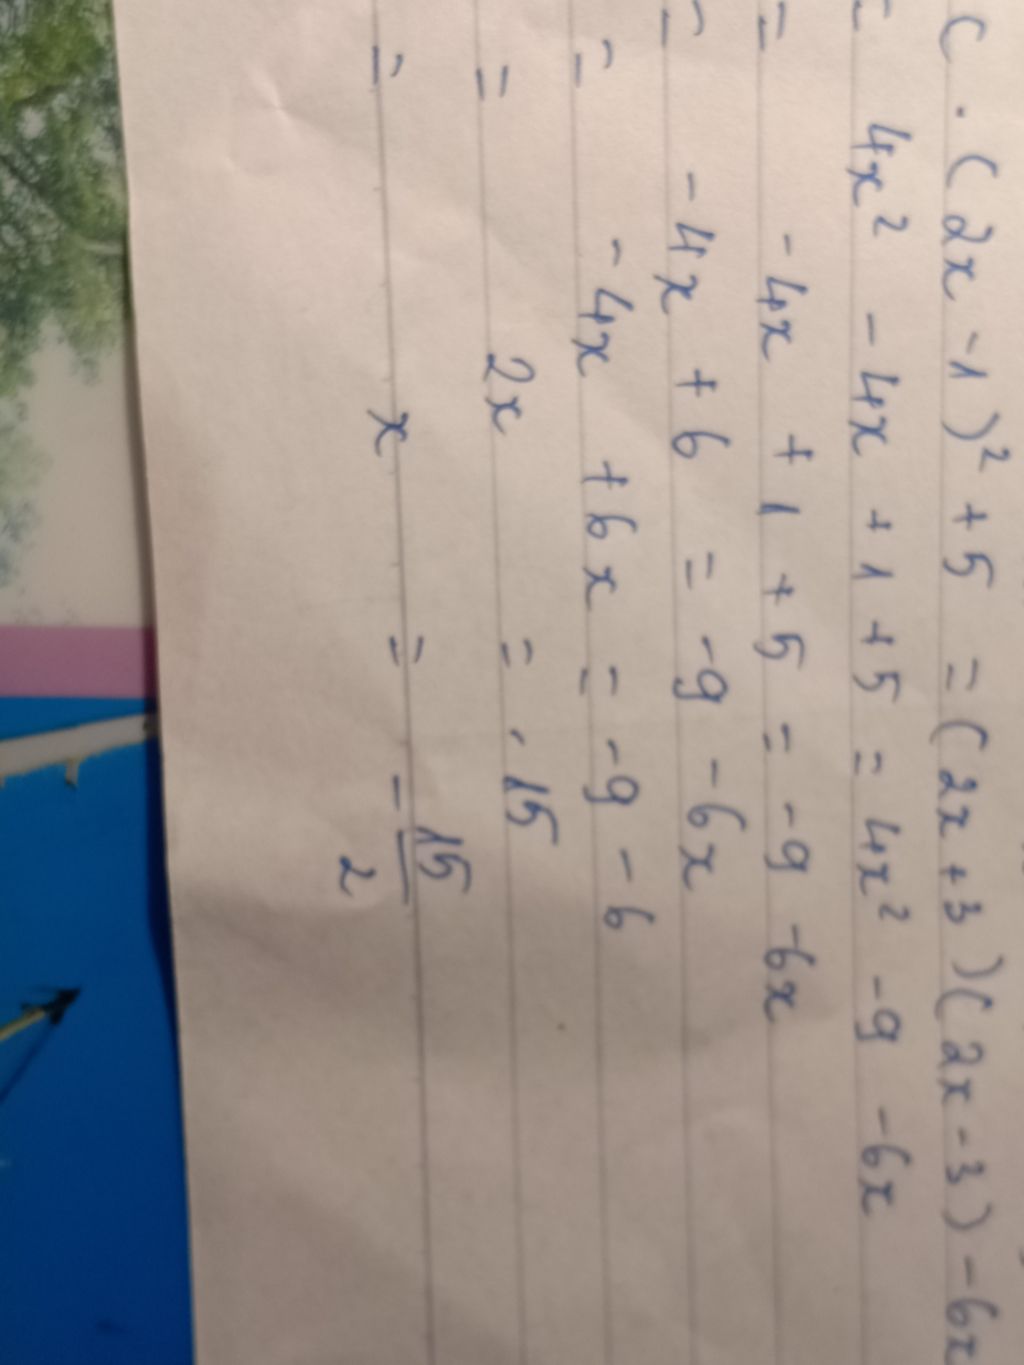 C. (2x - 1)² + 5 = (2x + 3)(2x - 3) - 6x
= 4x² - 4x + 1 + 5 = 4x² - 9 - 6x
= - 4x + 1 + 5 = - 9 - 6x
= - 4x + 6 = - 9 - 6x
= - 4x + 6x = - 9 - 6
= 2x = - 15
= x = - 15/2